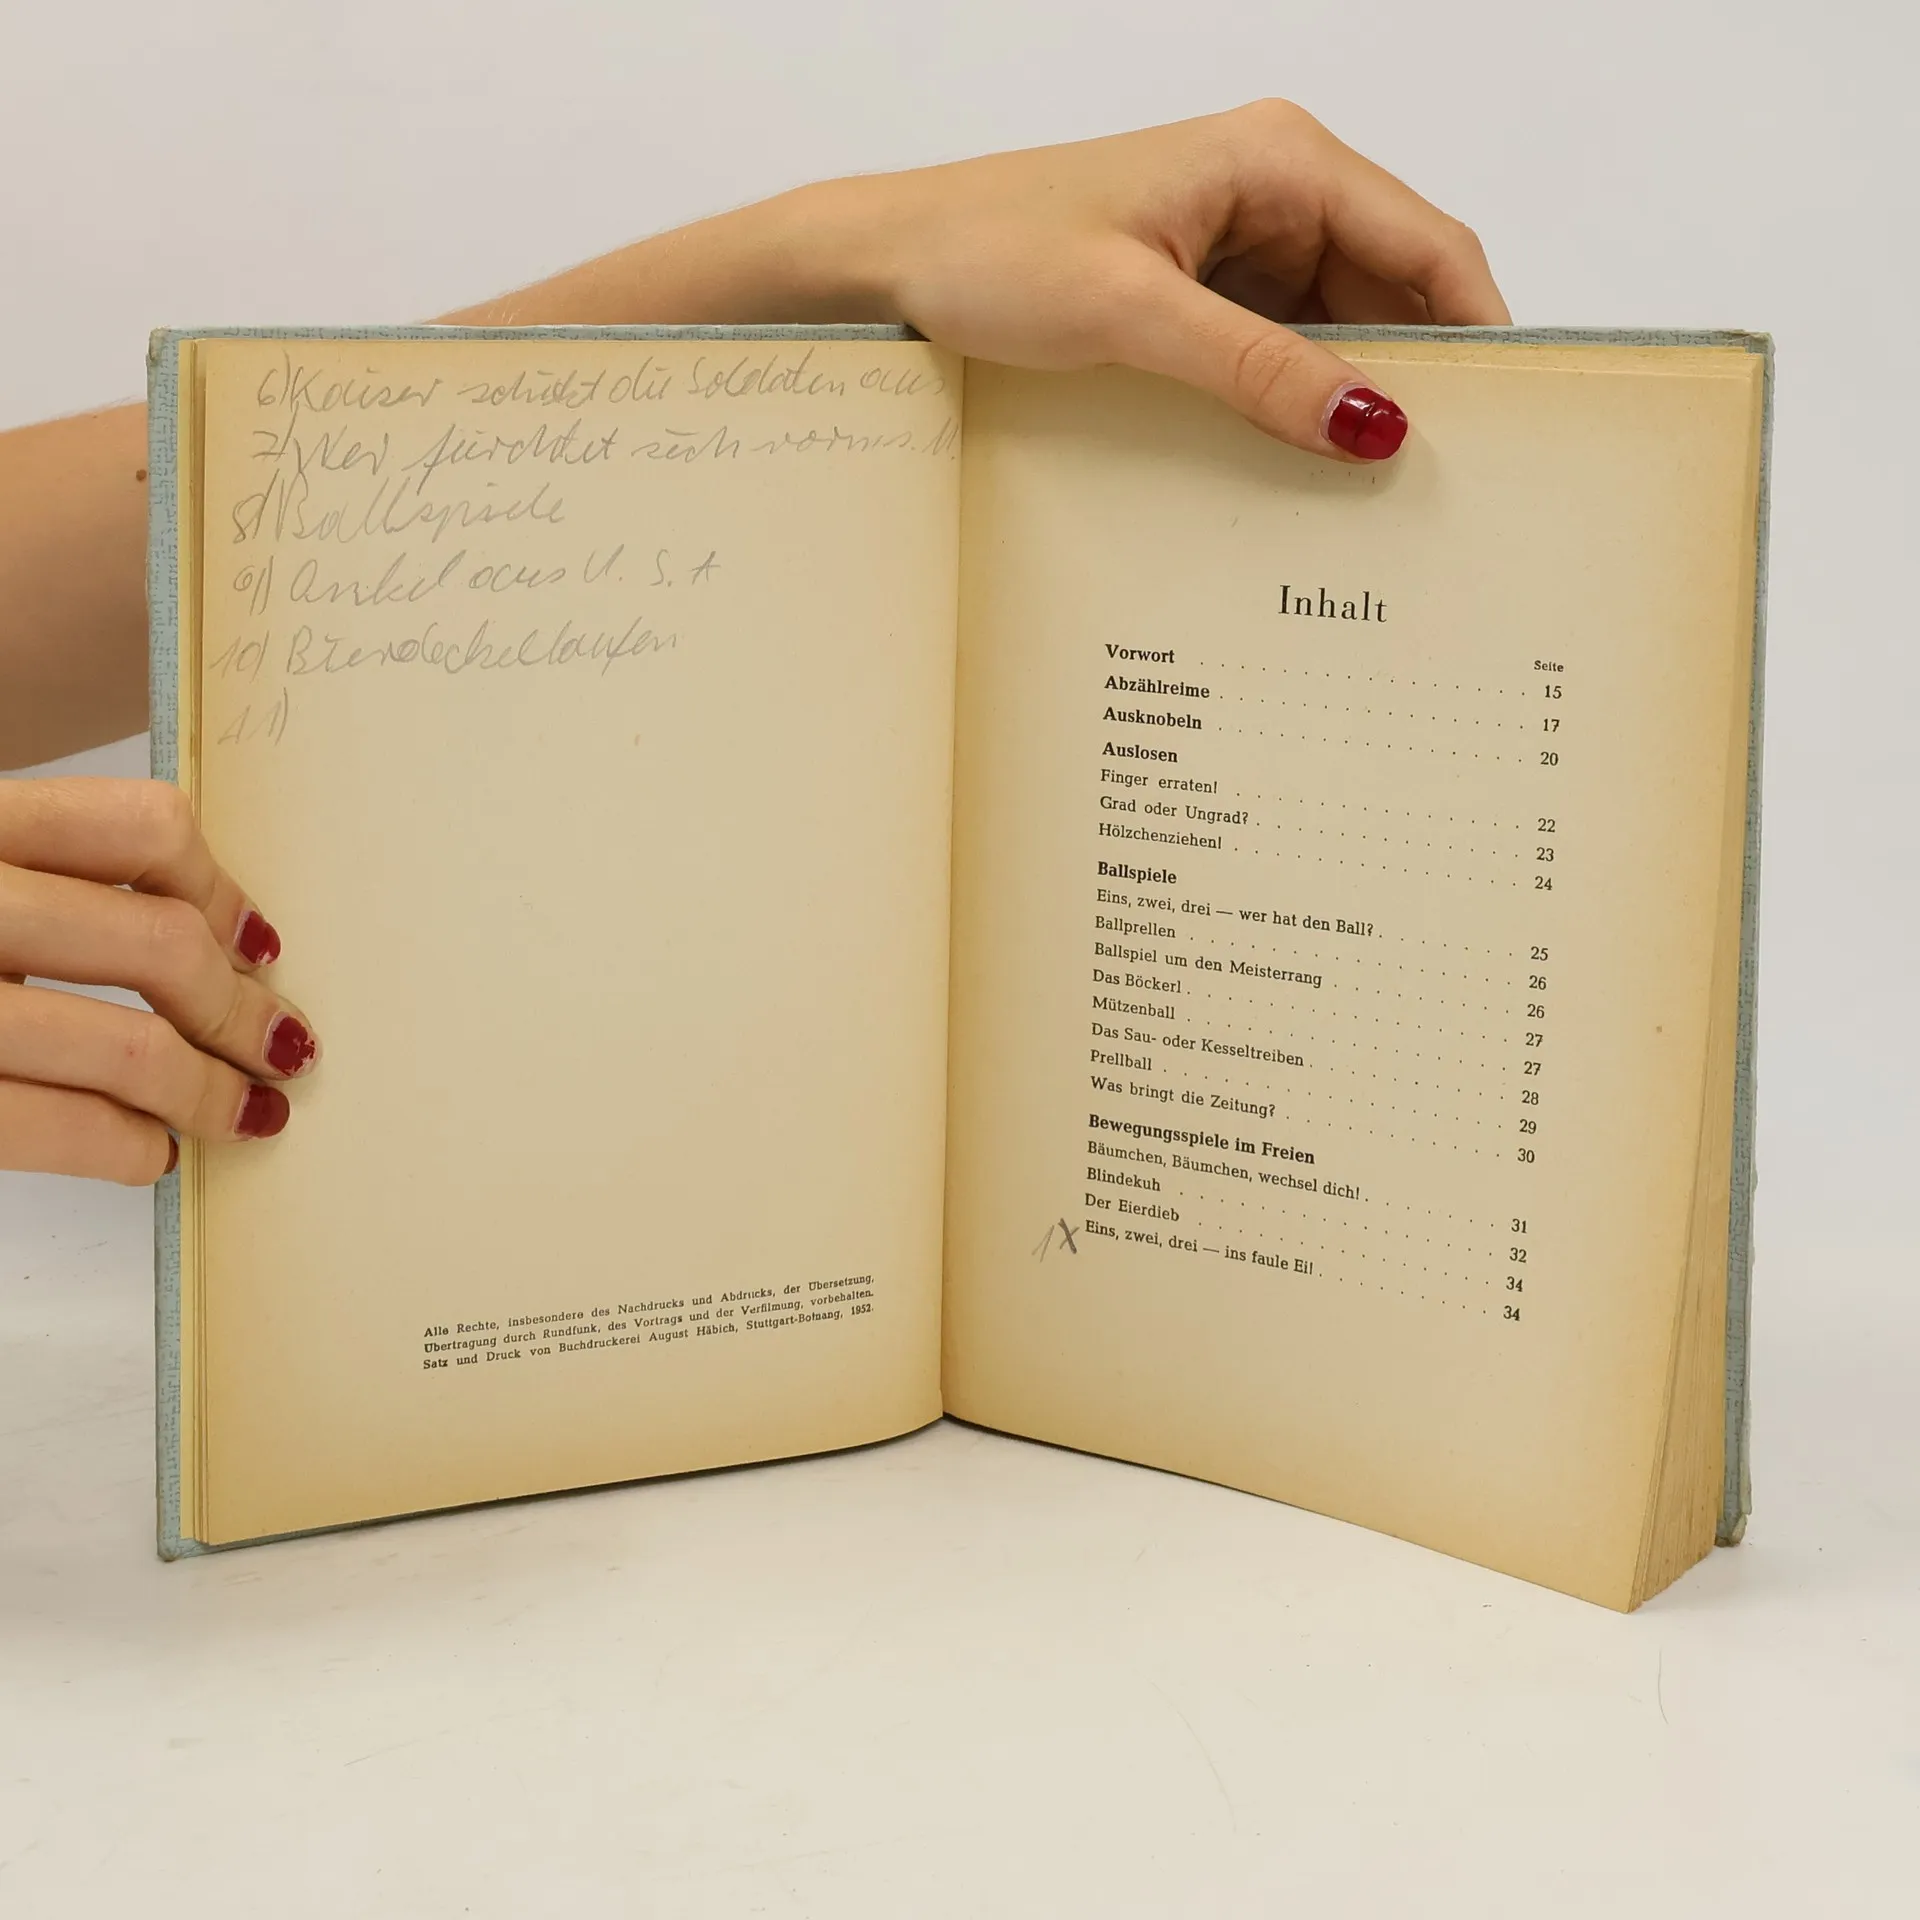 6) Kaiser schickt die Soldaten aus
7) Wer fürchtet sich vorm s. M.
8) Ballspiele
9) Onkel aus U. S. A
10) Bierdeckellaufen
11)
Alle Rechte, insbesondere des Nachdrucks und Abdrucks, der Übersetzung,
Übertragung durch Rundfunk, des Vortrags und der Verfilmung, vorbehalten.
Satz und Druck von Buchdruckerei August Häbich, Stuttgart-Botnang, 1952.
Inhalt
Seite
Vorwort . . . . . . . . . . . . . 15
Abzählreime . . . . . . . . . . . . . 17
Ausknobeln . . . . . . . . . . . . . 20
Auslosen
Finger erraten! . . . . . . . . . . . . 22
Grad oder Ungrad? . . . . . . . . . . . 23
Hölzchenziehen! . . . . . . . . . . . . 24
Ballspiele
Eins, zwei, drei — wer hat den Ball? . . . . . . 25
Ballprellen . . . . . . . . . . . . . 26
Ballspiel um den Meisterrang . . . . . . . . 26
Das Böckerl . . . . . . . . . . . . . 27
Mützenball . . . . . . . . . . . . . 27
Das Sau- oder Kesseltreiben . . . . . . . . 28
Prellball . . . . . . . . . . . . . . 29
Was bringt die Zeitung? . . . . . . . . . 30
Bewegungsspiele im Freien
Bäumchen, Bäumchen, wechsel dich! . . . . . . 31
Blindekuh . . . . . . . . . . . . . 32
Der Eierdieb . . . . . . . . . . . . 34
1X Eins, zwei, drei — ins faule Ei! . . . . . . . 34